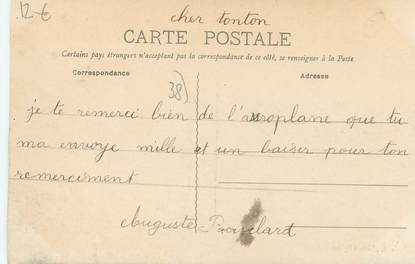 12 €
cher tonton
CARTE POSTALE
Certains pays étrangers n'acceptant pas la correspondance de ce côté, se renseigner à la Poste
Correspondance
Adresse
38)
je te remerci bien de l'aeroplane que tu
ma envoye mille et un baiser pour ton
remerciment
Auguste